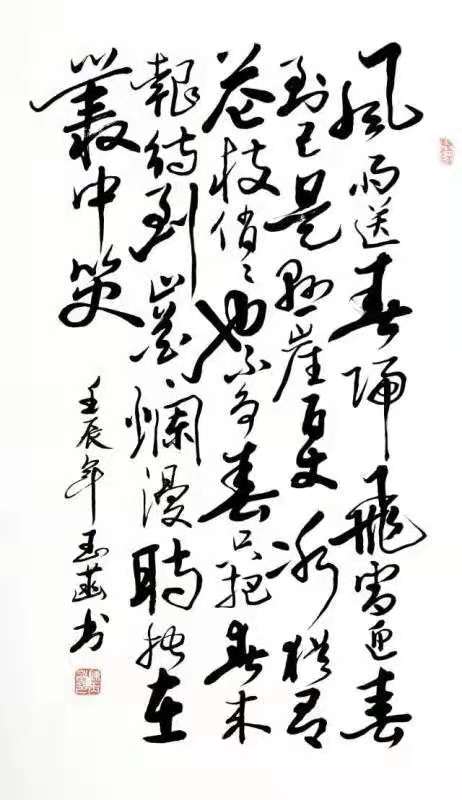 風雨送春歸飛雪迎春
到已是懸崖百丈冰猶有
花枝俏〻也不爭春只把春來
報待到山花爛漫時她在
叢中笑
壬辰年玉菡书